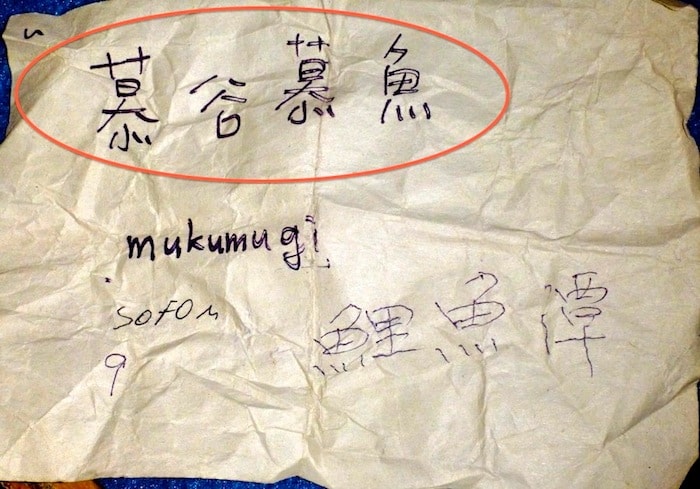 慕谷慕魚
mukumugi
SOFOM
9
鯉魚潭